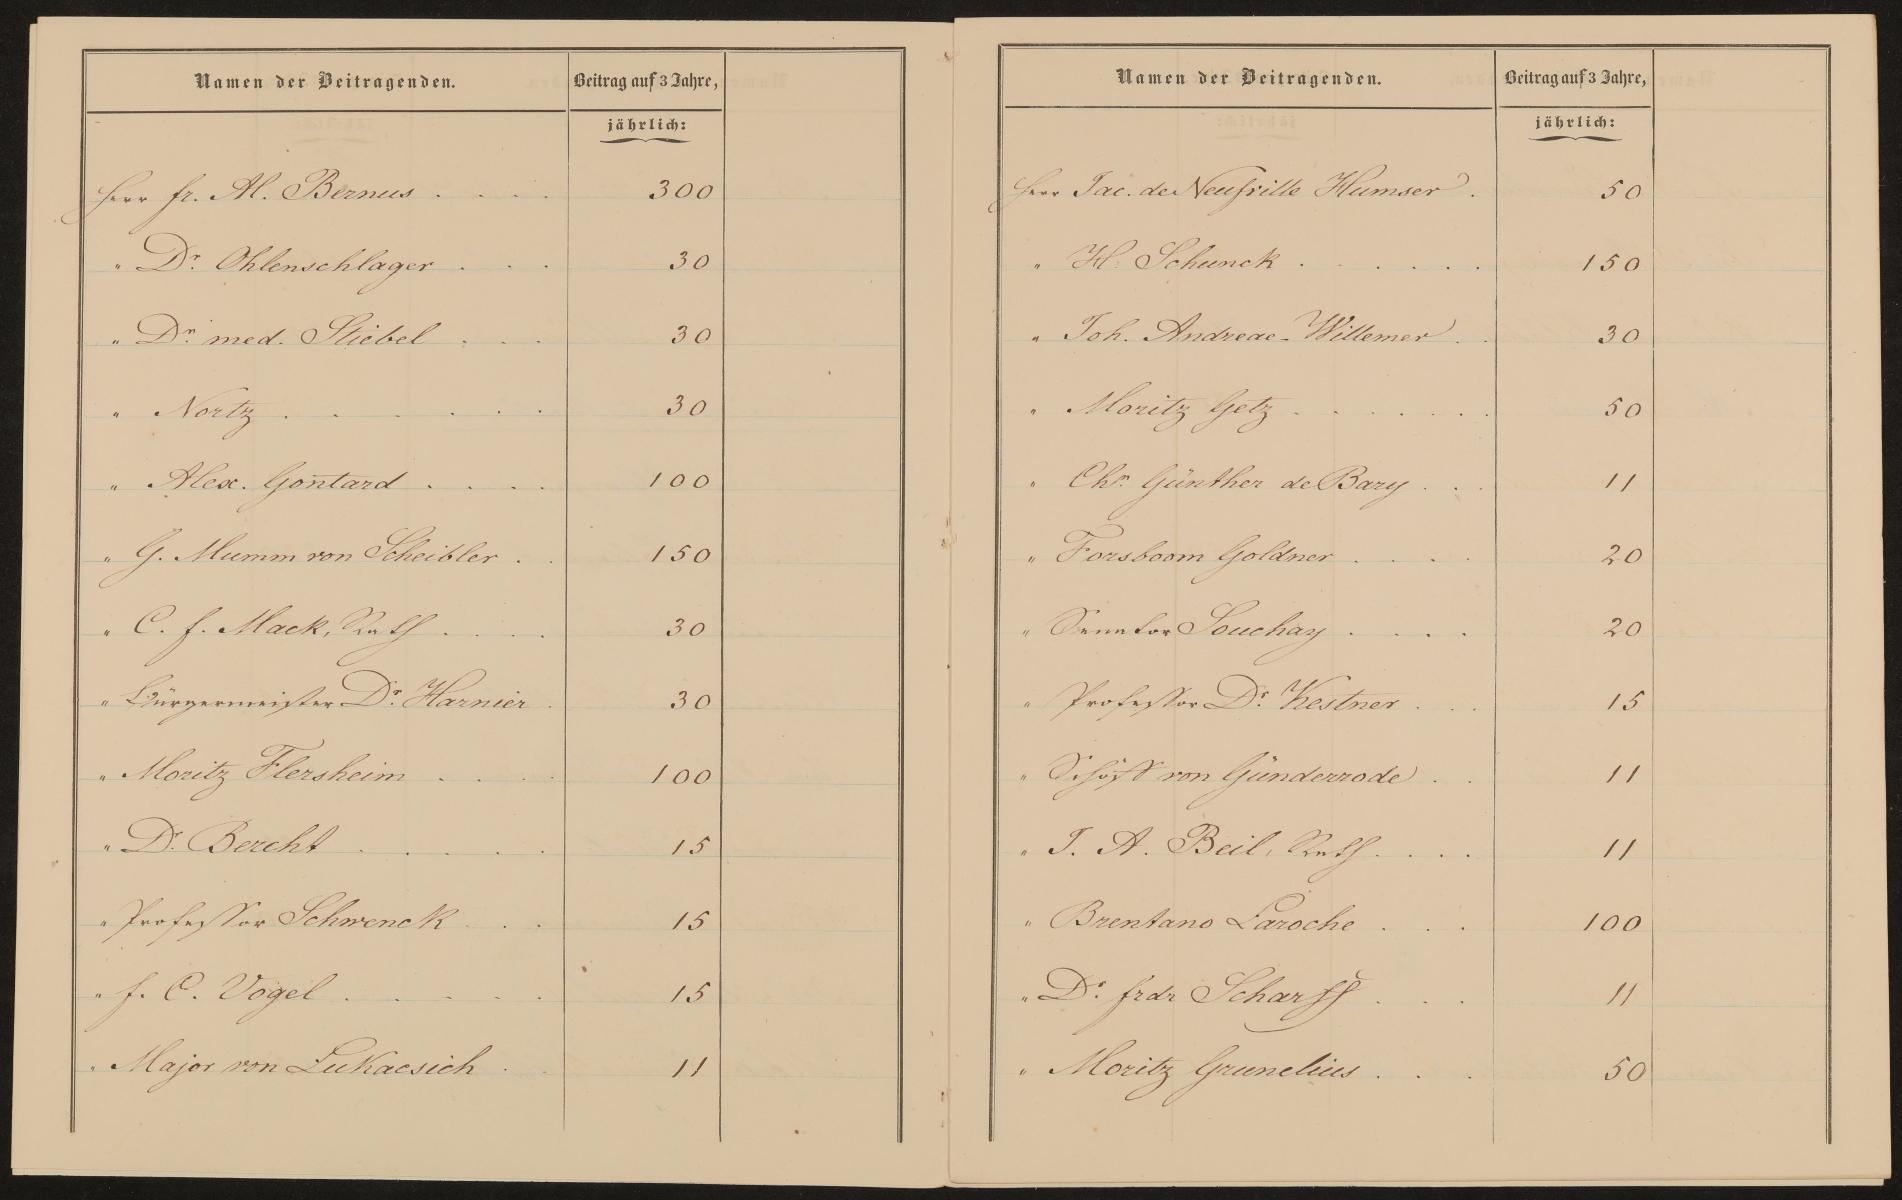 Namen der Beitragenden. Beitrag auf 3 Jahre,
jährlich:
Herr fr. Al. Bernus . . . . 300
" Dr. Ohlenschlager . . . 30
" Dr. med. Stiebel . . . 30
" Nortz . . . . . . 30
" Alex. Gontard . . . . 100
" G. Mumm von Scheibler . . 150
" C. f. Mack, Rath . . . . 30
" Bürgermeister Dr. Harnier . 30
" Moritz Flersheim . . . . 100
" Dr. Bercht . . . . . 15
" Professor Schwenck . . . 15
" f. C. Vogel . . . . . 15
" Major von Lukacsich . . 11
Namen der Beitragenden. Beitrag auf 3 Jahre,
jährlich:
Herr Jac. de Neufville Humser . 50
" H. Schunck . . . . . . 150
" Joh. Andreae-Willemer . . 30
" Moritz Getz . . . . . . . 50
" Chr. Günther de Bary . . . 11
" Forsboom Goldner . . . . 20
" Senator Souchay . . . . 20
" Professor Dr. Kestner . . . 15
" Schöff von Günderrode . . 11
" J. A. Beil, Rath . . . . 11
" Brentano Laroche . . . 100
" Dr. frdr Scharff . . . 11
" Moritz Grunelius . . . 50